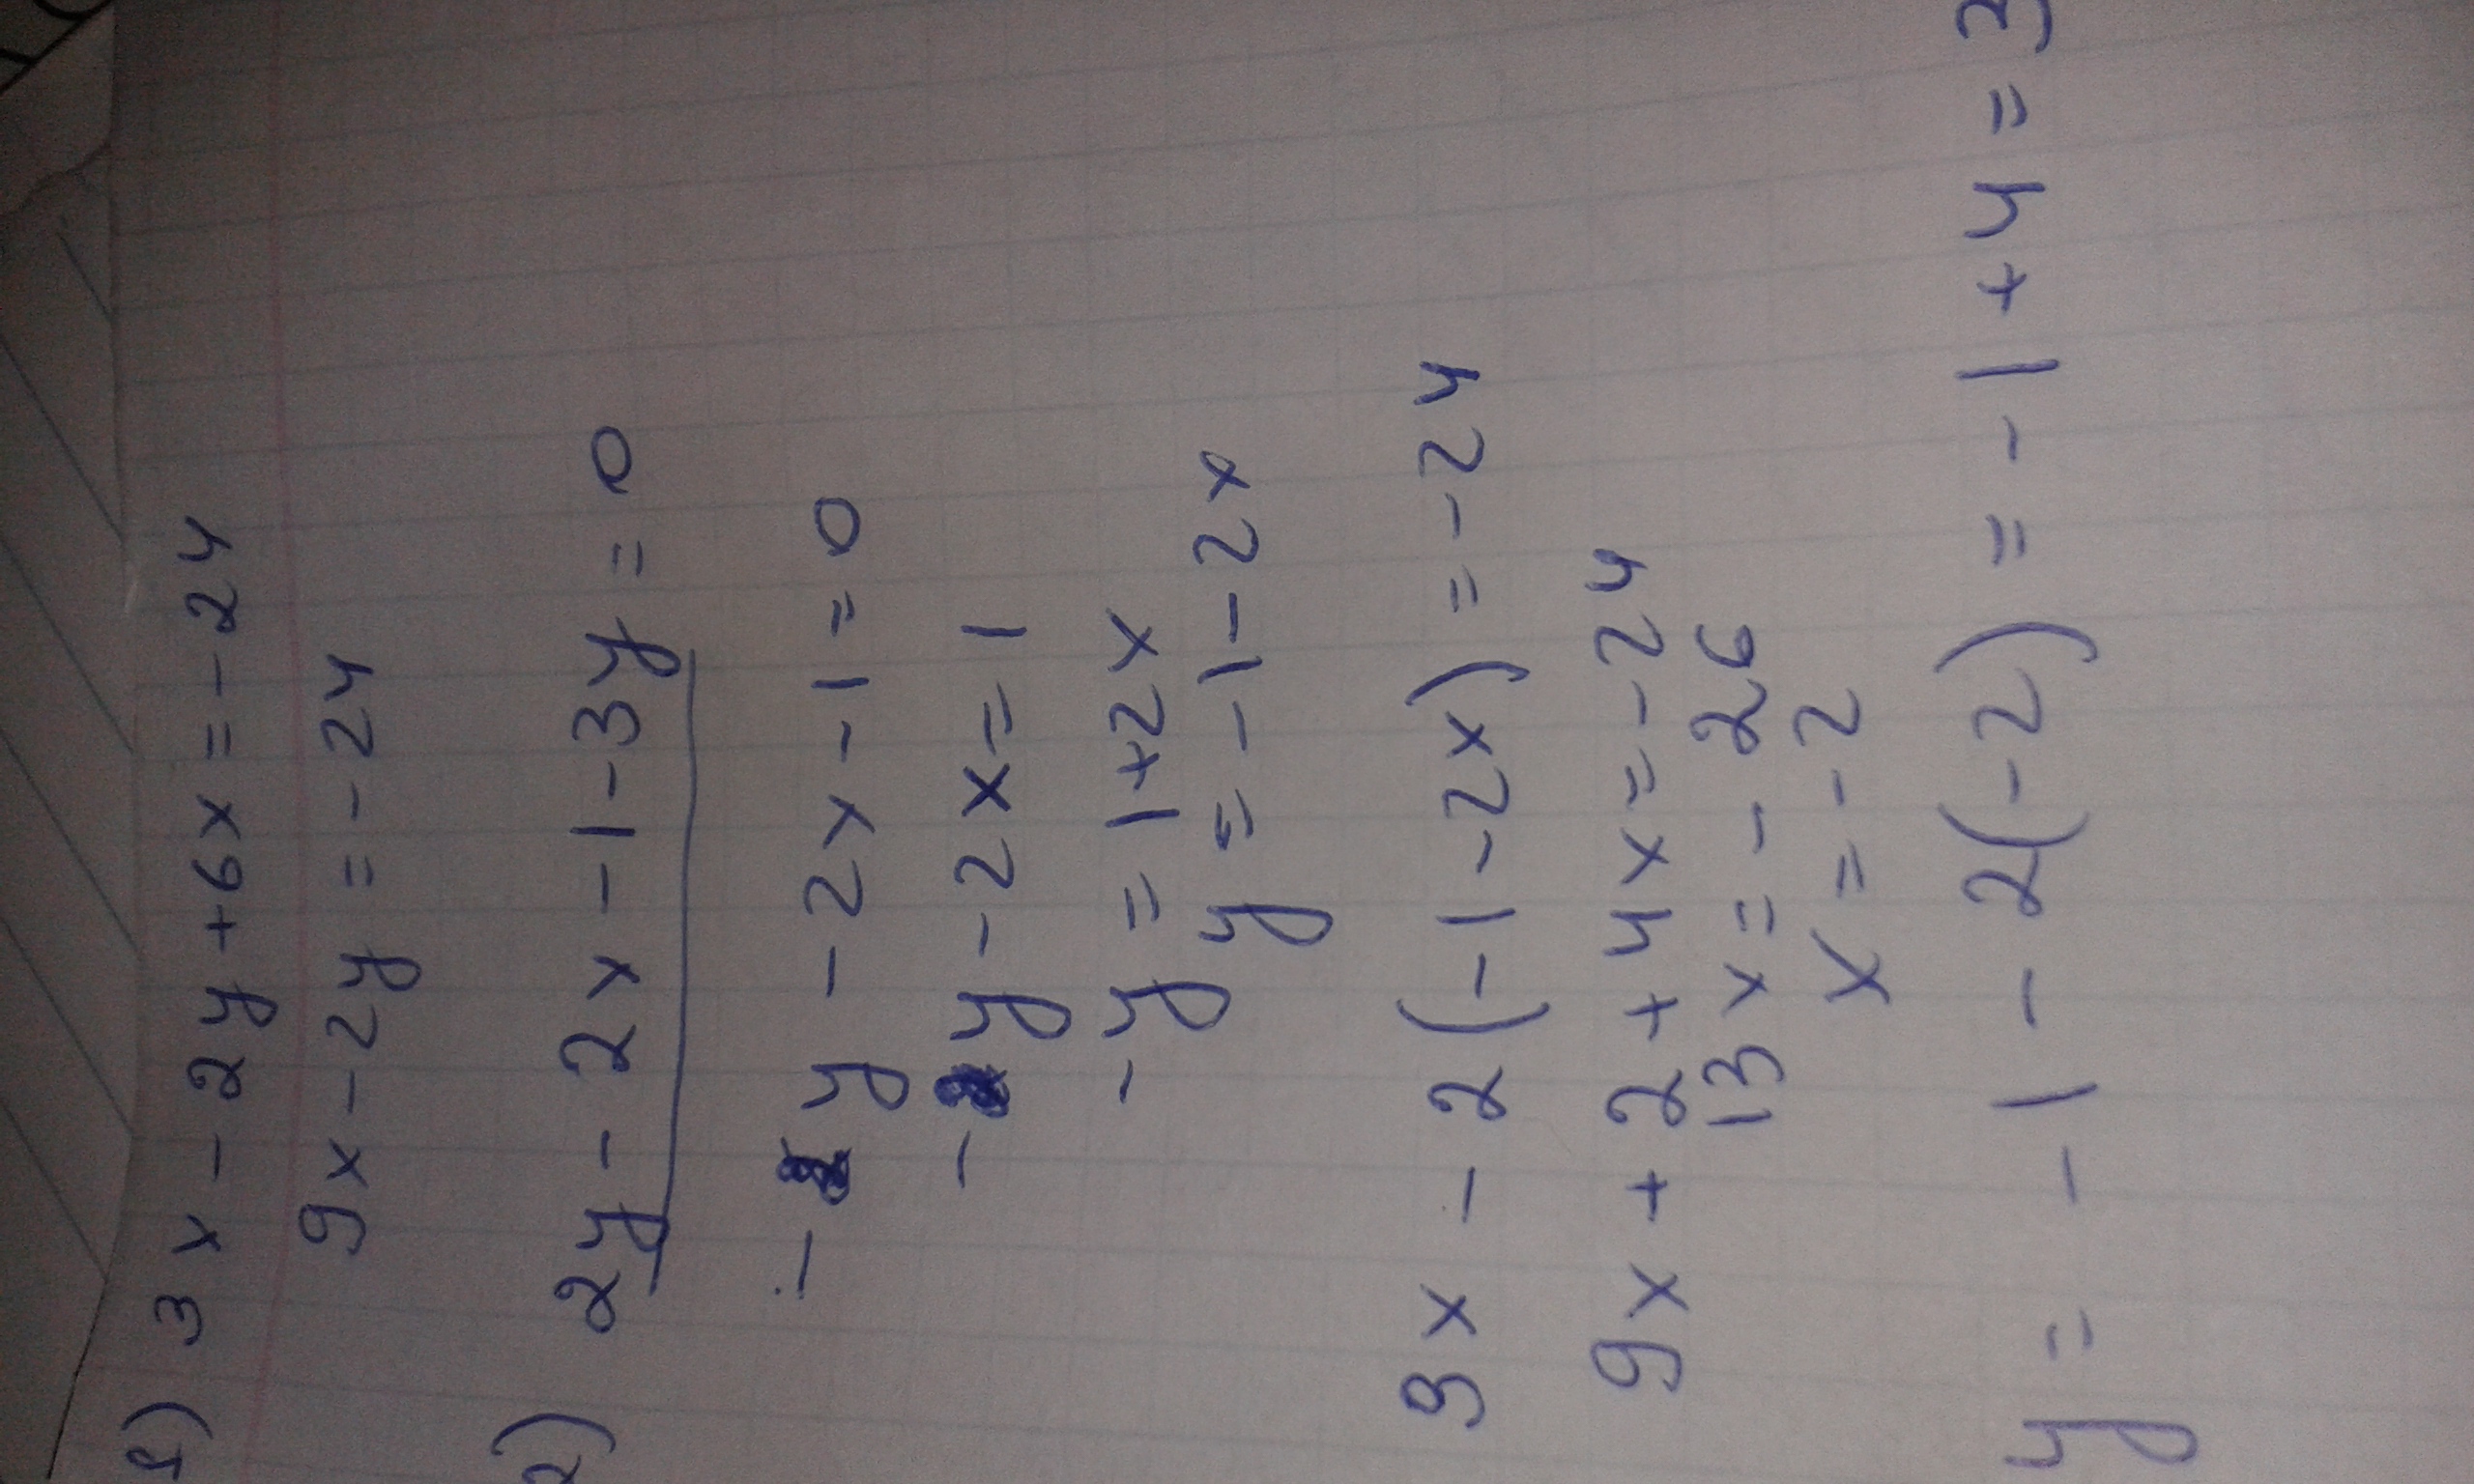 1) 3x - 2y + 6x = - 24
9x - 2y = - 24
2) 2y - 2x - 1 - 3y = 0
- y - 2x - 1 = 0
- y - 2x = 1
- y = 1 + 2x
y = - 1 - 2x
9x - 2(-1 - 2x) = - 24
9x + 2 + 4x = - 24
13x = - 26
x = - 2
y = - 1 - 2(-2) = - 1 + 4 = 3